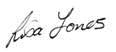 Lisa Jones